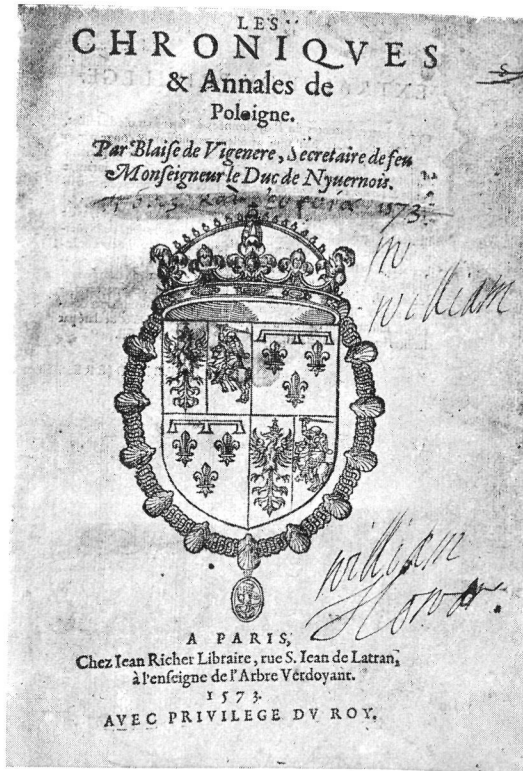 LES
CHRONIQVES
& Annales de
Poloigne.
Par Blaiſe de Vigenere, Secretaire de feu
Monſeigneur le Duc de Nyuernois.
1573.
william
william
Howar.
A PARIS,
Chez Iean Richer Libraire, rue S. Iean de Latran,
à l'enſeigne de l'Arbre Verdoyant.
1573.
AVEC PRIVILEGE DV ROY.